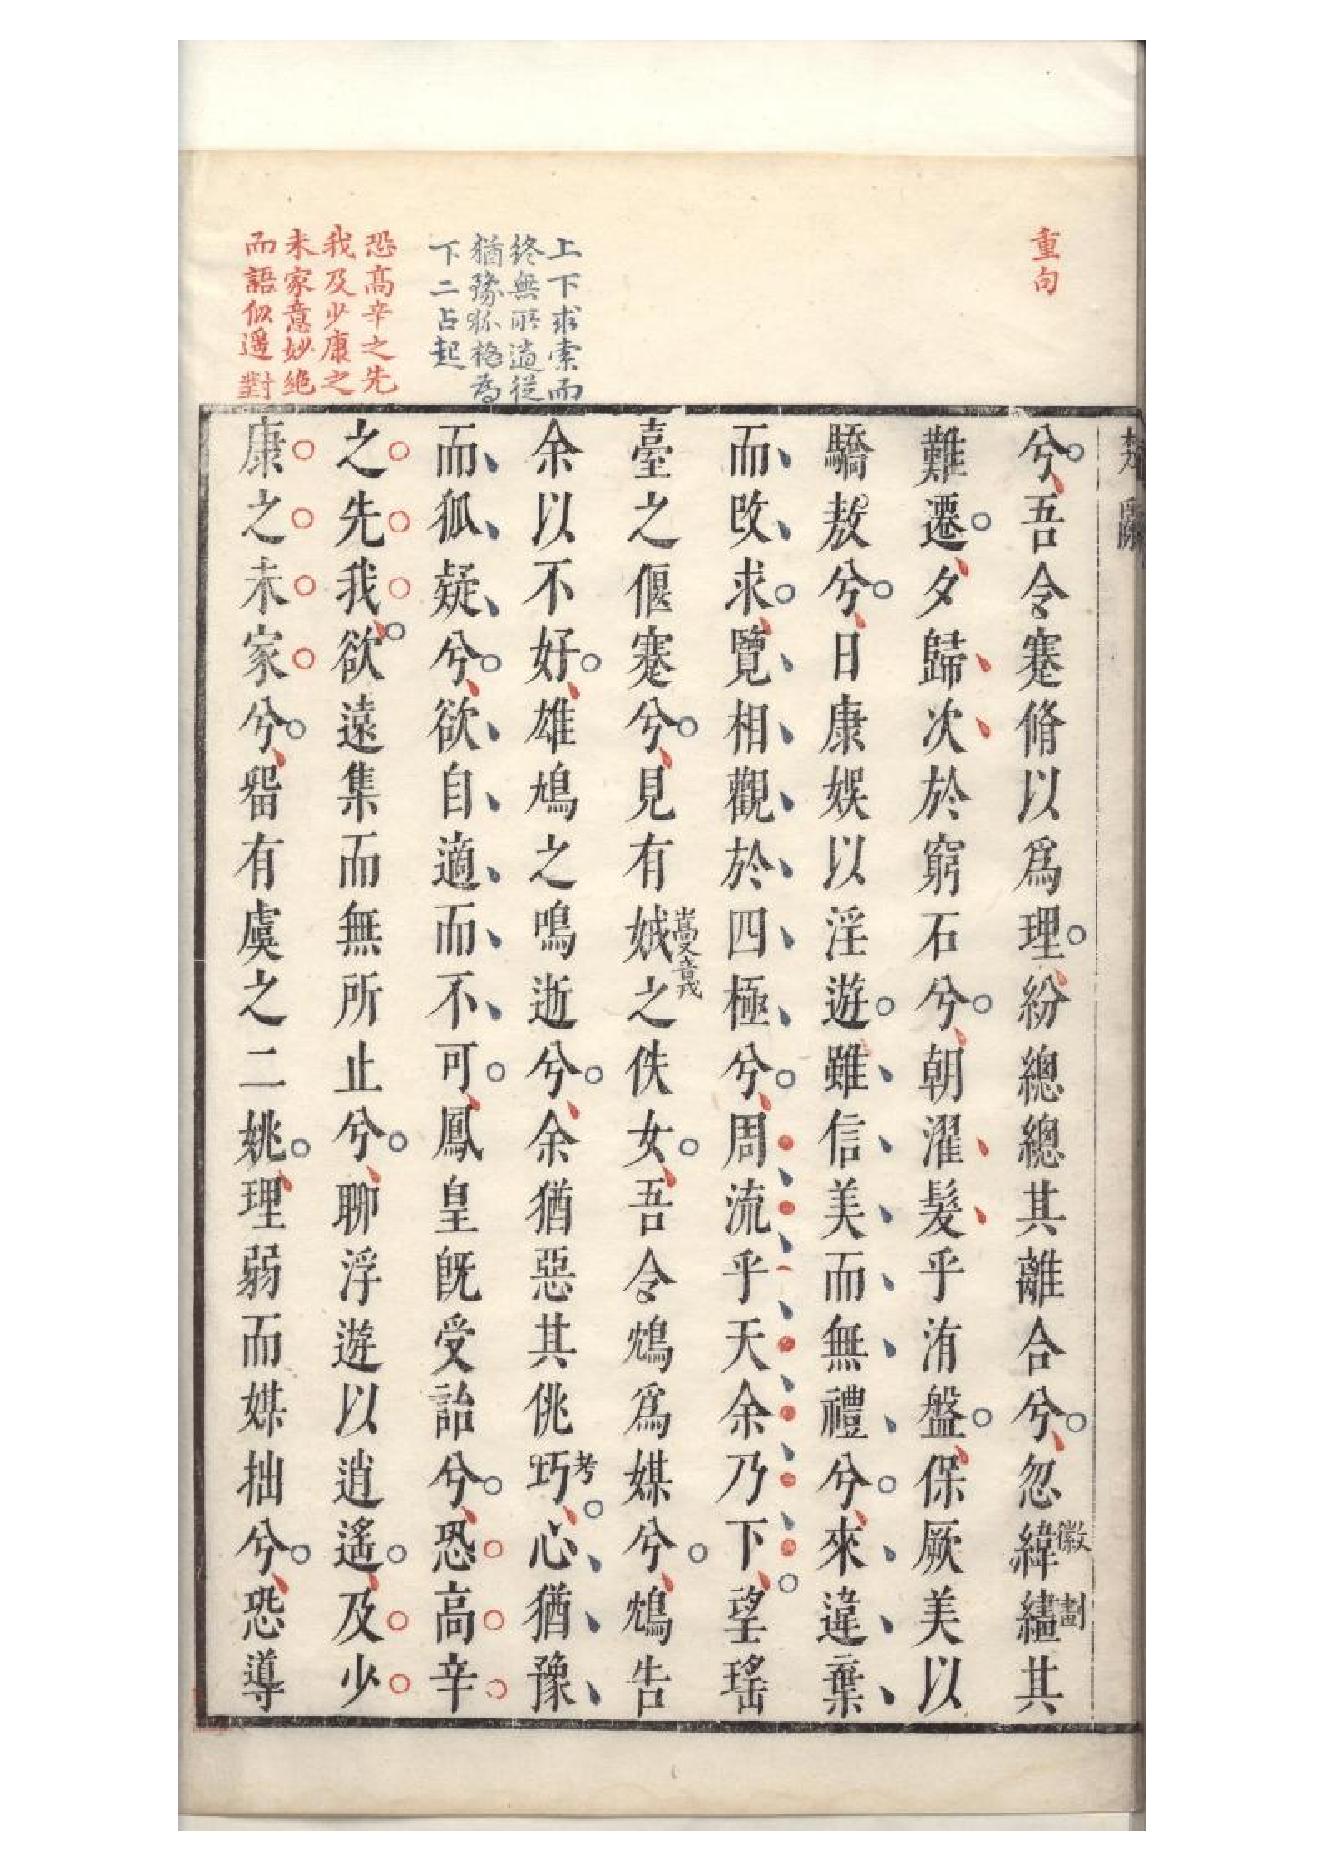 重句
上下求索而
終無所遇從
猶豫狐疑為
下二占起
恐高辛之先
我及少康之
未家意妙絕
而語似遥對
兮吾令蹇脩以爲理紛總總其離合兮忽緯繣其
徽
劃
難遷夕歸次於窮石兮朝濯髮乎洧盤保厥美以
驕敖兮日康娛以淫遊雖信美而無禮兮來違棄
而改求覽相觀於四極兮周流乎天余乃下望瑤
臺之偃蹇兮見有娀之佚女吾令鴆爲媒兮鴆告
嵩又音戎
余以不好雄鳩之鳴逝兮余猶惡其佻巧心猶豫
考
而狐疑兮欲自適而不可鳳皇旣受詒兮恐高辛
之先我欲遠集而無所止兮聊浮遊以逍遙及少
康之未家兮畱有虞之二姚理弱而媒拙兮恐導